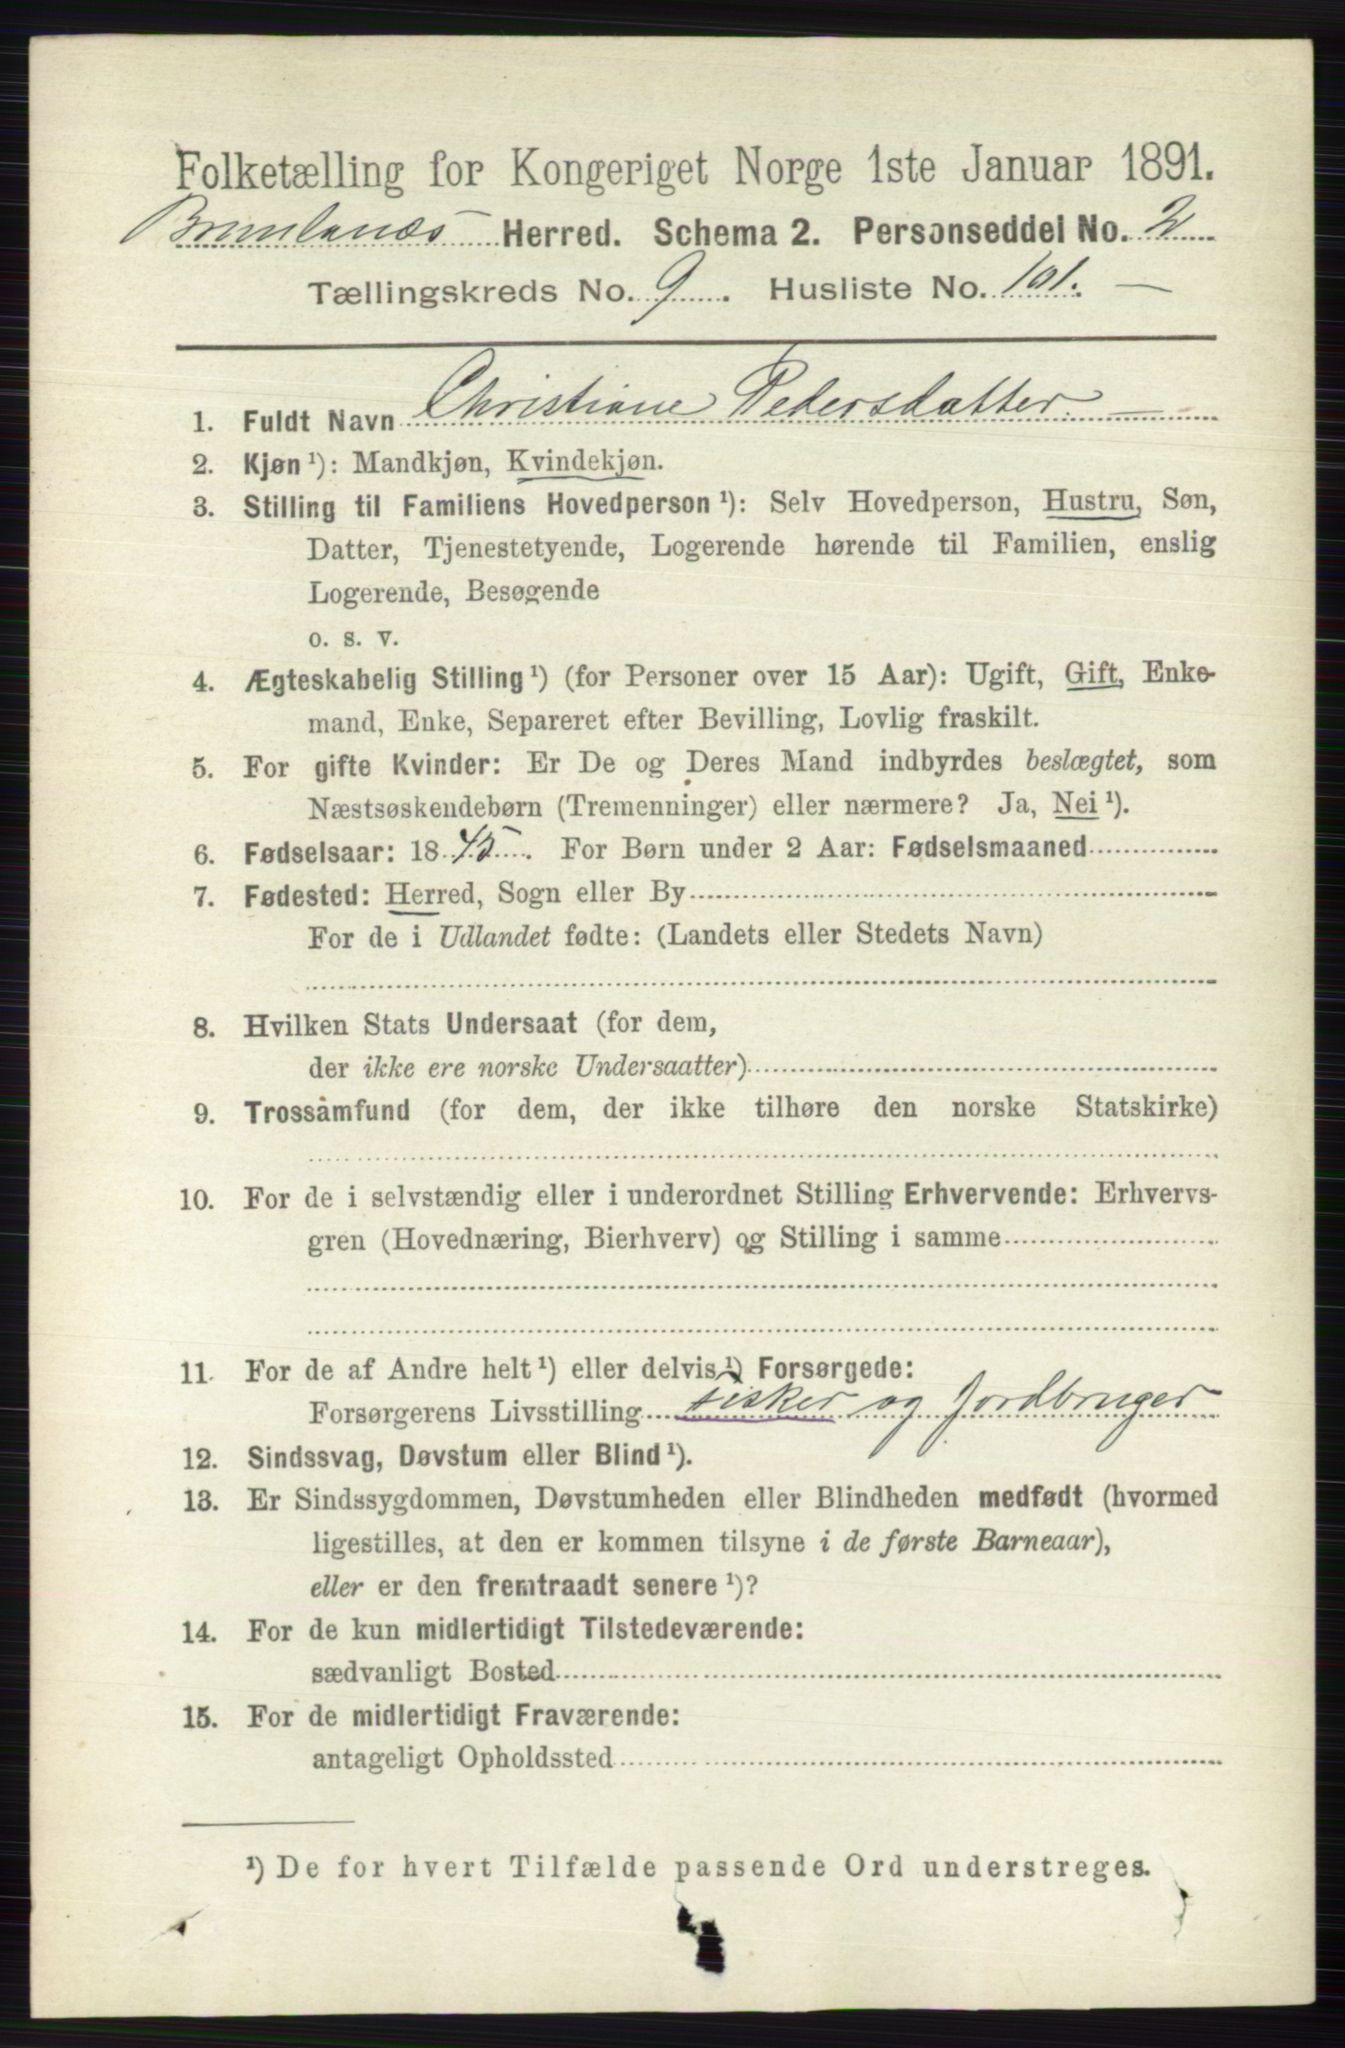 Folketælling for Kongeriget Norge 1ste Januar 1891.
Brunlanæs Herred. Schema 2. Personseddel No. 2
Tællingskreds No. 9. Husliste No. 101. —
1. Fuldt Navn Christiane Pedersdatter. —
2. Kjøn ¹): Mandkjøn, Kvindekjøn.
3. Stilling til Familiens Hovedperson ¹): Selv Hovedperson, Hustru, Søn,
Datter, Tjenestetyende, Logerende hørende til Familien, enslig
Logerende, Besøgende
o. s. v.
4. Ægteskabelig Stilling ¹) (for Personer over 15 Aar): Ugift, Gift, Enke-
mand, Enke, Separeret efter Bevilling, Lovlig fraskilt.
5. For gifte Kvinder: Er De og Deres Mand indbyrdes beslægtet, som
Næstsøskendebørn (Tremenninger) eller nærmere? Ja, Nei ¹).
6. Fødselsaar: 1845. For Børn under 2 Aar: Fødselsmaaned
7. Fødested: Herred, Sogn eller By
For de i Udlandet fødte: (Landets eller Stedets Navn)
8. Hvilken Stats Undersaat (for dem,
der ikke ere norske Undersaatter)
9. Trossamfund (for dem, der ikke tilhøre den norske Statskirke)
10. For de i selvstændig eller i underordnet Stilling Erhvervende: Erhvervs-
gren (Hovednæring, Bierhverv) og Stilling i samme
11. For de af Andre helt ¹) eller delvis ¹) Forsørgede:
Forsørgerens Livsstilling Fisker og Jordbruger
12. Sindssvag, Døvstum eller Blind ¹).
13. Er Sindssygdommen, Døvstumheden eller Blindheden medfødt (hvormed
ligestilles, at den er kommen tilsyne i de første Barneaar),
eller er den fremtraadt senere ¹)?
14. For de kun midlertidigt Tilstedeværende:
sædvanligt Bosted
15. For de midlertidigt Fraværende:
antageligt Opholdssted
¹) De for hvert Tilfælde passende Ord understreges.